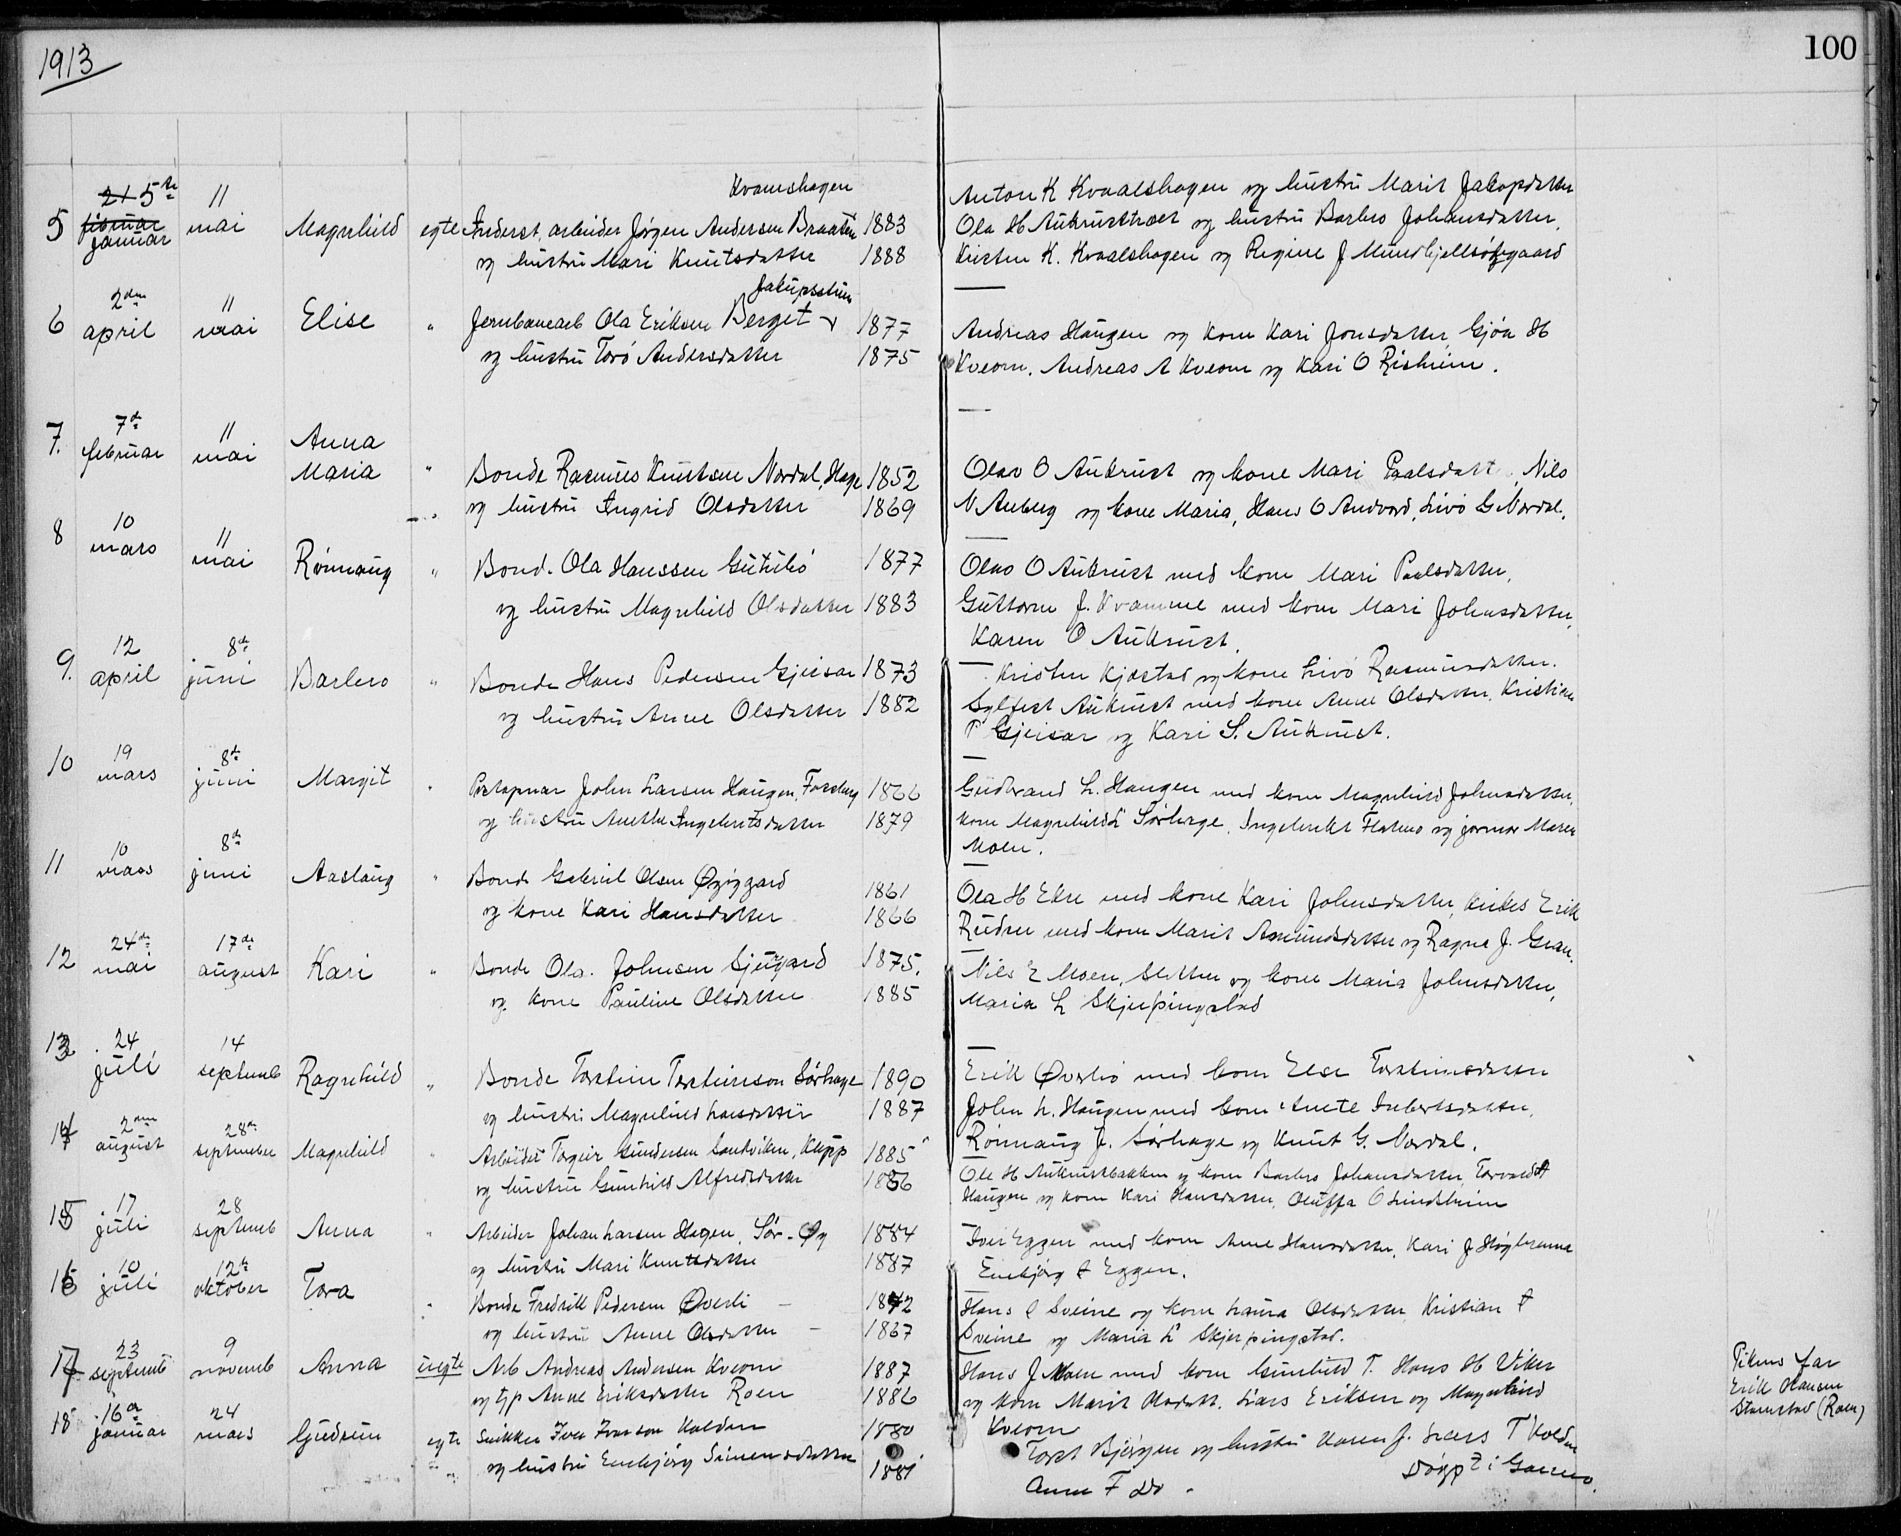 1913
100
5 21 5te februar januar 11 mai Magnhild egte Inderst, arbeider Jørgen Andersen Braaten Kvamshagen 1883
og hustru Mari Knutsdatter 1888
Anton K Kvaalshagen og hustru Marit Jakopdatter
Ola H Aukrusttræet og hustru Barbro Johansdatter,
Kristen K. Kvaalshagen og Regine J
6 2den april 11 mai Elise " Jernbanearb Ola Eriksen Berget 1877
og hustru Torø Andersdatter 1875
Andreas Haugen og kone Kari Jonsdatter, Gjøa H
Kveom, Andreas A Kveom og Kari O Risheim.
7. 7de februar 11 mai Anna Maria " Bonde Rasmus Knutsen Nordal, Hage 1852
og hustru Ingrid Olsdatter 1869
Olav O Aukrust og kone Mari Paalsdatt, Nils
N Anberg og kone Maria, Hans O Andvord, Livø G Nordal.
8 10 mars 11 mai Rønnaug " Bond. Ola Hanssen Gutubø 1877
og hustru Magnhild Olsdatter 1883
Olav O Aukrust med kone Mari Paalsdatter,
Guttorm J. Kvamme med kone Mari Johnsdatter,
Karen O Aukrust.
9. 12 april 8de juni Barbro " Bonde Hans Pedersen Gjeisar 1873
og hustru Anne Olsdatter 1882
Kristen Kjæstad og kone Livø Rasmusdatter.
Sylfest Aukrust med kone Anne Olsdatter, Kristian
P Gjeisar og Kari S. Aukrust.
10 19 mars 8de juni Margit " Postapnar John Larsen Haugen, Fossberg 1866
og hustru Anette Ingebretsdatter 1879
Gudbrand L. Haugen med kone Magnhild Johnsdatter,
kone Magnhild L Sørhage, Ingebrikt Flatmo og jormor Maren
Moen.
11 10 mars 8de juni Aaslaug " Bonde Gabriel Olsen Øygaard 1861
og kone Kari Hansdatter 1866
Ola H Ekre med kone Kari Johnsdatter, Erik
Rudren med kone Marit Amundsdatter og Ragna J. Gran.
12 24de mai 17de august Kari " Bonde Ola Johnsen Sjugard 1875.
og kone Pauline Olsdatter 1885
Nils E Moen, Sletten og kone Maria Johnsdatter,
Maria L Skjerpingstad
13 24 juli 14 septemb Ragnhild " Bonde Torstein Torsteinson Sørhage 1890
og hustru Magnhild Larsdatter 1887
Erik Øverbø med kone Else Torsteinsdatter
John L. Haugen med kone Anete Inbertsdatter,
Rønnaug J. Sørhage og Knut G. Nordal.
14 2den august 28de september Magnhild " Arbeider Torgeir Gundersen Sandviken, Klepp 1885
og hustru Gunhild Alfredsdatter 1886
Ole H Aukrustbakken og kone Barbro Johansdatter, Torvald
Haugen og kone Kari Hansdatter, Oluffa O Lindsheim
15 17 juli 28 septemb Anna " Arbeider Johan Larsen Hagen, Sør-Øy 1884
og hustru Mari Knutsdatter 1887
Iver Eggen med kone Anne Hansdatter, Kari J Høgbrenna
Embjørg Eggen.
16 10 juli 12te oktober Tora " Bonde Fredrik Pedersen Øverli 1872
og hustru Anne Olsdatter 1867
Hans Sveine og kone Laura Olsdatter Kristian
Sveine og Maria L Skjerpingstad.
17 23 septemb 9 novemb Anna uegte Arb Andreas Andersen Kveom 1887
og typ Anne Eriksdatter Roen 1886
Hans J Moen med kone Gunhild T. Hans H Viker
og kone Marit Olsdatt, Lars Eriksen og Magnhild
Kveom
Pikens far
Erik Hansen
Stamstad (Roen)
18 16de januar 24 mars Gudrun egte Snikker Iver Iverson Kolden 1880
og hustru Embjørg Simensdatter 1881
Tost Bjørgen og hustru Karen J. Lars T Kolden
Anne F Do - Døypt i Garmo.